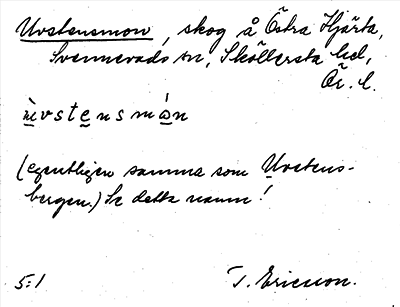 Urstensmon, skog å Östra Hjärta,
Svennevads sn, Sköllersta hd,
Ör. l.
ùrstensmón
(egentligen samma som Urstens-
bergen.) Se detta namn!
5:1 T. Ericsson.